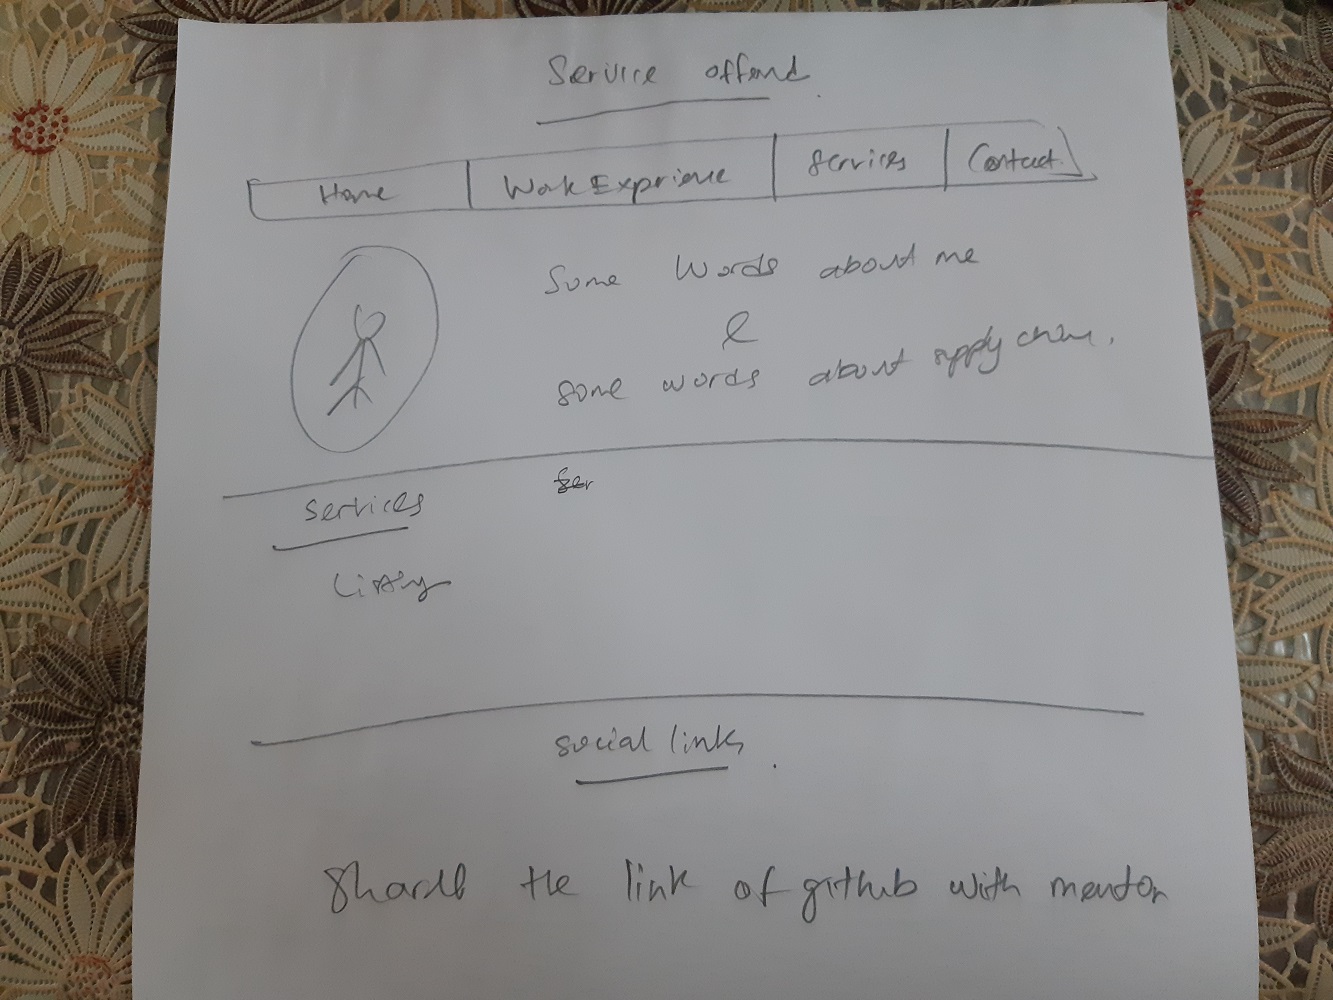 Service offerd
Home Work Exprience Services Contact
Some Words about me
&
some words about supply chain.
ser
Services
Listing
social links
Share the link of github with mentor